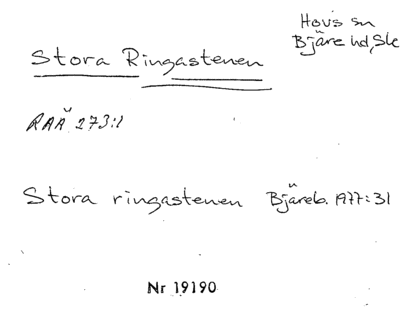 Hovs sn
Bjäre hd, Sk
Stora Ringastenen
RAÄ 273:1
Stora ringastenen Bjäreb. 1977:31
Nr 19190